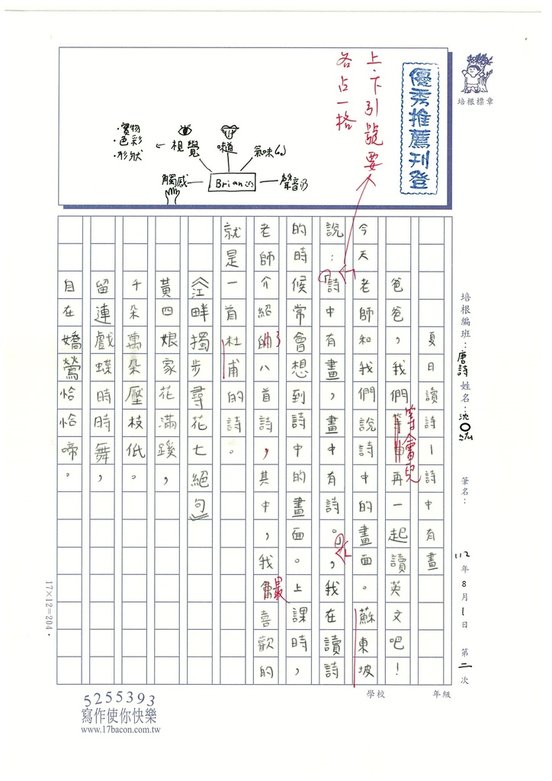 優秀推薦刊登
培根標章
上、下引號要
各占一格
視覺
味道
氣味
聲音
觸感
Brian
•實物
•色彩
•形狀
培根編班：唐詩 姓名：沈○泓 筆名： 112年8月1日 第二次
學校 年級
夏日讀詩－詩中有畫
爸爸，我們等會兒再一起讀英文吧！
今天老師和我們說詩中的畫面。蘇東坡
說：「詩中有畫，畫中有詩。」，我在讀詩
的時候常會想到詩中的畫面。上課時，
老師介紹了八首詩，其中，我最喜歡的
就是一首杜甫的詩。
《江畔獨步尋花七絕句》
黃四娘家花滿蹊，
千朵萬朵壓枝低。
留連戲蝶時時舞，
自在嬌鶯恰恰啼。
17×12=204．
5255393
寫作使你快樂
www.17bacon.com.tw